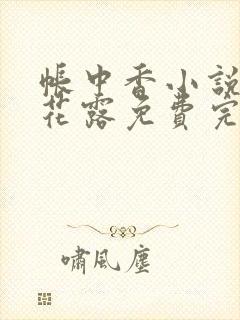 帳中香小說
花露免費完
嘯風塵